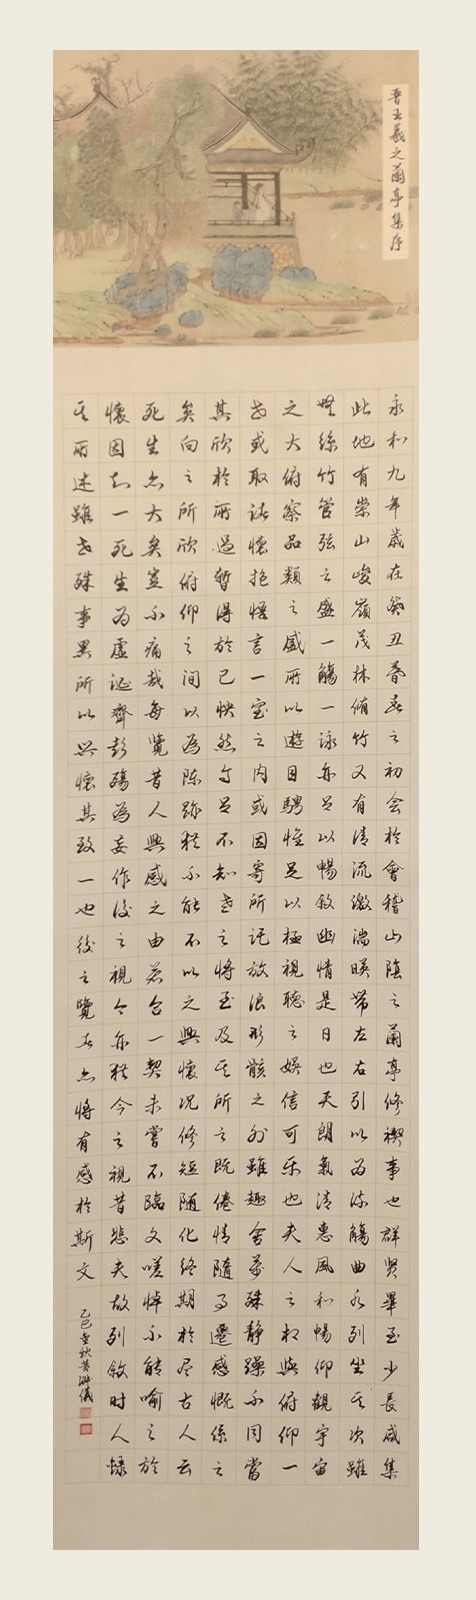 晋王羲之蘭亭集序
永和九年歲在癸丑暮春之初会於會稽山陰之蘭亭修禊事也群贤畢至少長咸集
此地有崇山峻嶺茂林脩竹又有清流激湍暎帶左右引以为流觴曲水列坐其次雖
無絲竹管弦之盛一觴一詠亦足以暢敘幽情是日也天朗氣清惠風和暢仰觀宇宙
之大俯察品類之盛所以遊目騁懷足以極視聽之娛信可乐也夫人之相與俯仰一
世或取諸懷抱悟言一室之内或因寄所託放浪形骸之外雖趣舍萬殊静躁不同當
其欣於所遇暫得於己快然自足不知老之將至及其所之既倦情隨事遷感慨係之
矣向之所欣俯仰之間以為陈跡猶不能不以之興懷况修短随化终期於尽古人云
死生亦大矣豈不痛哉每覽昔人興感之由若合一契未嘗不臨文嗟悼不能喻之於
懷因知一死生为虚诞齊彭殤為妄作後之視今亦猶今之視昔悲夫故列敘时人録
其所述雖世殊事異所以興懷其致一也後之覽者亦將有感於斯文
乙巳金秋黄儀